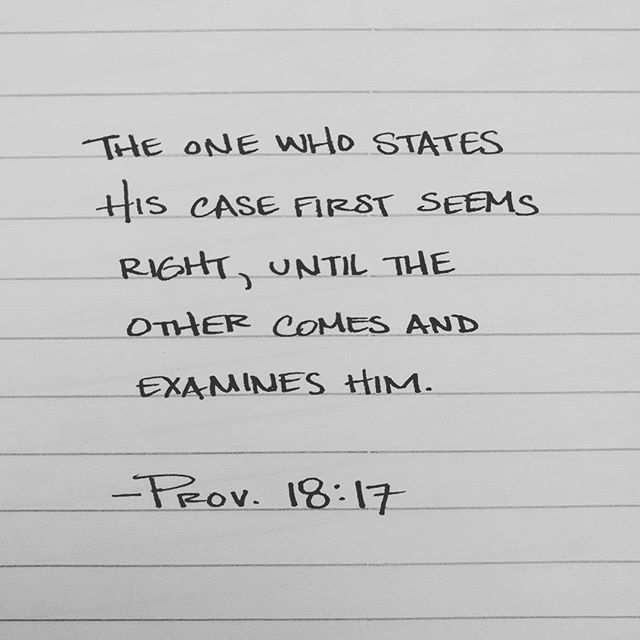 THE ONE WHO STATES
HIS CASE FIRST SEEMS
RIGHT, UNTIL THE
OTHER COMES AND
EXAMINES HIM.
-PROV. 18:17